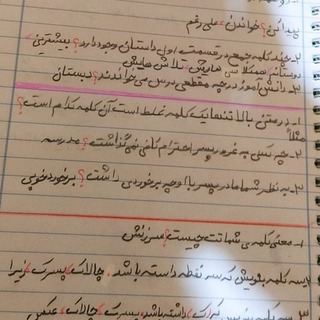 پیدا کن؟ خواندن؟ علی رغم
۱- چند کلمه جمع در قسمت اول داستان وجود دارد؟ بیشترین؟
دوستانش همکلاسی هایش، تلاش هایش
۲- دانش آموز در چه مقطعی درس می خواندند؟ دبستان
۱- در متن بالا تنها یک کلمه غلط است آن کلمه کدام است؟
مثلاً
۲- چه کسی به غرور پسر احترام کافی نمی گذاشت؟ مدرسه
۳- به نظر شما مادر پسر با او چه برخوردی داشت؟ برخورد خوبی
۱- معنی کلمه ی شماتت چیست؟ سرزنش
۲- سه کلمه بنویس که سه نقطه داشته باشد. چالاک، پسرک، زیرا
۳- سه کلمه داشته باشد. پسرک، چالاک،